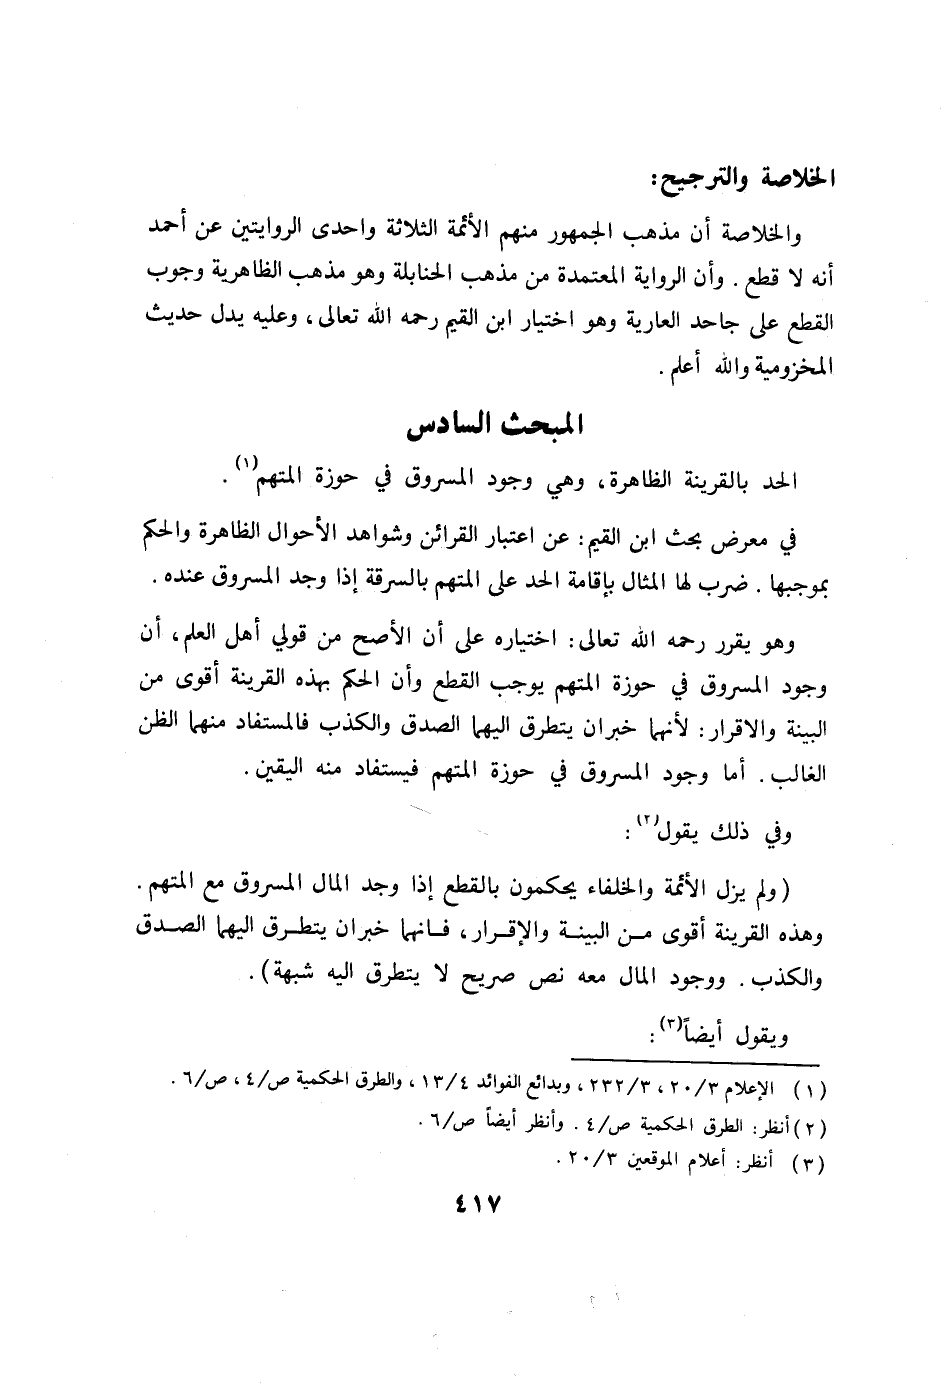 الخلاصة والترجيح:
والخلاصة أن مذهب الجمهور منهم الأئمة الثلاثة واحدى الروايتين عن أحمد
أنه لا قطع . وأن الرواية المعتمدة من مذهب الحنابلة وهو مذهب الظاهرية وجوب
القطع على جاحد العارية وهو اختيار ابن القيم رحمه الله تعالى، وعليه يدل حديث
المخزومية والله أعلم .
المبحث السادس
الحد بالقرينة الظاهرة، وهي وجود المسروق في حوزة المتهم(١) .
في معرض بحث ابن القيم: عن اعتبار القرائن وشواهد الأحوال الظاهرة والحكم
بموجبها . ضرب لها المثال بإقامة الحد على المتهم بالسرقة إذا وجد المسروق عنده .
وهو يقرر رحمه الله تعالى: اختياره على أن الأصح من قولي أهل العلم، أن
وجود المسروق في حوزة المتهم يوجب القطع وأن الحكم بهذه القرينة أقوى من
البينة والاقرار: لأنهما خبران يتطرق اليهما الصدق والكذب فالمستفاد منهما الظن
الغالب. أما وجود المسروق في حوزة المتهم فيستفاد منه اليقين.
وفي ذلك يقول(٢) :
(ولم يزل الأئمة والخلفاء يحكمون بالقطع إذا وجد المال المسروق مع المتهم.
وهذه القرينة أقوى مـن البينـة والإقـرار، فـانهما خبران يتطـرق اليهما الصـدق
والكذب. ووجود المال معه نص صريح لا يتطرق اليه شبهة).
ويقول أيضاً(٣) :
(١) الإعلام ٢٠/٣ ، ٢٣٢/٣ ، وبدائع الفوائد ١٣/٤ ، والطرق الحكمية ص/٤ ، ص/٦ .
(٢) أنظر: الطرق الحكمية ص/٤ . وأنظر أيضاً ص/٦ .
(٣) أنظر: أعلام الموقعين ٢٠/٣ .
٤١٧